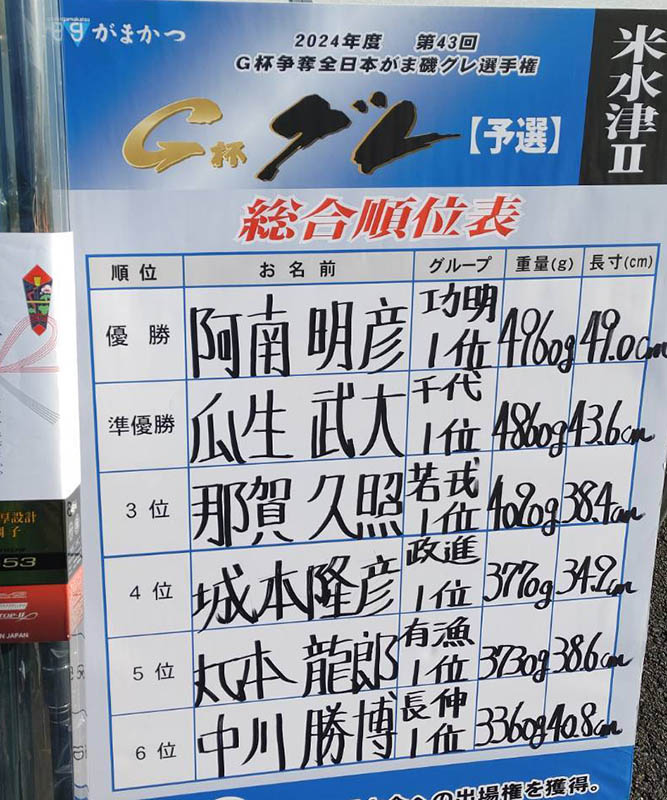 がまかつ
2024年度 第43回
G杯争奪全日本がま磯グレ選手権
G杯グレ【予選】
米水津II
総合順位表
順位 お名前 グループ 重量(g) 長寸(cm)
優勝 阿南 明彦 功明 1位 4960g 49.0cm
準優勝 瓜生 武大 千代 1位 4860g 43.6cm
3位 那賀 久照 若戎 1位 4090g 38.4cm
4位 城本隆彦 政進 1位 3770g 34.2cm
5位 丸本 龍郎 有漁 1位 3730g 38.6cm
6位 中川 勝博 長伸 1位 3360g 40.8cm
への出場権を獲得。
53
JAPAN